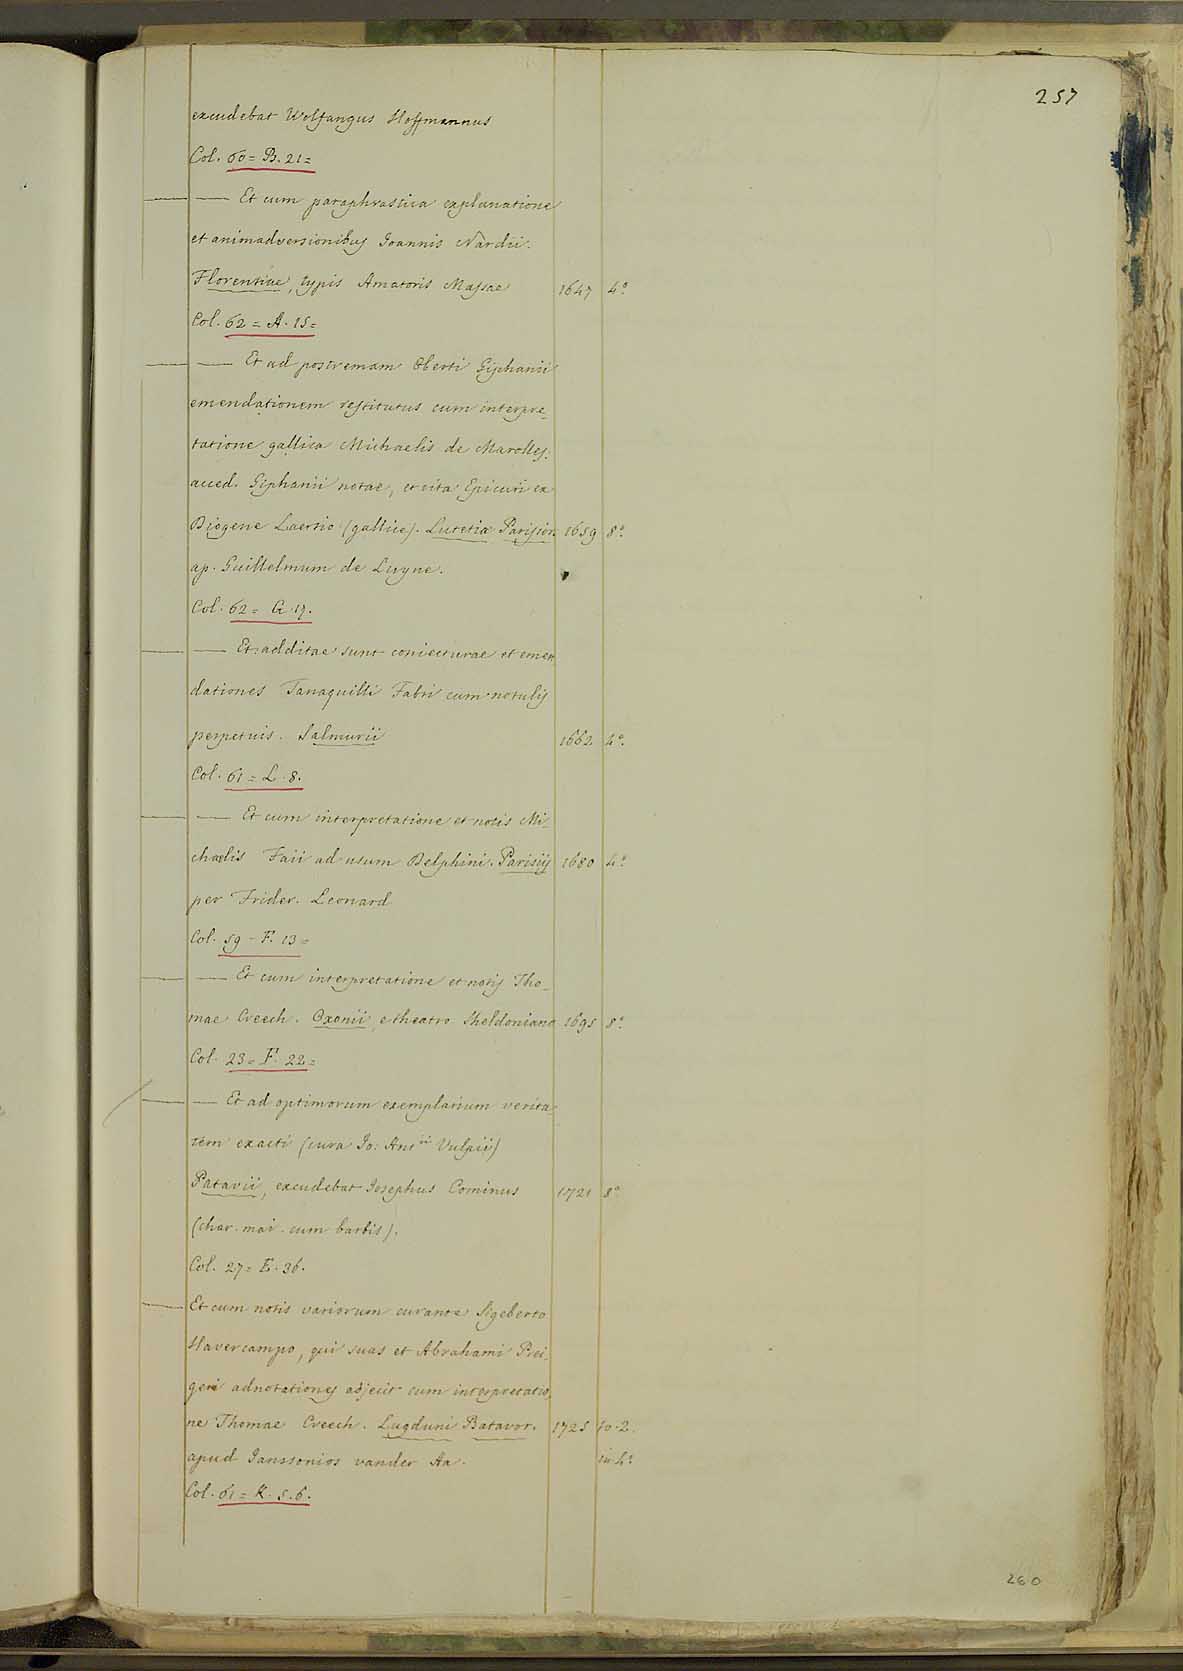 257
excudebat Wolfangus Hoffmannus
Col. 60 = B. 21 =
—— —— Et cum paraphrastica explanatione
et animadversionibus Joannis Nardii.
Florentiae, typis Amatoris Massae 1647 4°
Col. 62 = A. 15 =
—— —— Et ad postremam Oberti Giphanii
emendationem restitutus cum interpre=
tatione gallica Michaelis de Marolles.
acced. Giphanii notae, et vita Epicuri ex
Diogene Laertio (gallice). Lutetiae Parisior. 1659 8°.
ap. Guillelmum de Luyne.
Col. 62 = G. 17.
—— —— Et additae sunt coniecturae et emen
dationes Tanaquilli Fabri cum notulis
perpetuis. Salmurii 1662 4°.
Col. 61 = L. 8.
—— —— Et cum interpretatione et notis Mi=
chaelis Faii ad usum Delphini. Parisiis 1680 4°.
per Frider. Leonard
Col. 59 - F. 13 =
—— —— Et cum interpretatione et notis Tho=
mae Creech. Oxonii, e theatro Sheldoniano 1695 8°.
Col. 23 = F. 22 =
—— —— Et ad optimorum exemplarium verita=
tem exacti (cura Jo: Ant.ii Vulpii)
Patavii, excudebat Josephus Cominus 1721 8°
(char. mai. cum barbis).
Col. 27 = E. 36.
—— Et cum notis variorum curante Sigeberto
Havercampo, qui suas et Abrahami Prei=
geri adnotationes adjecit cum interpretatio=
ne Thomae Creech. Lugduni Batavor. 1725 to. 2.
apud Janssonios vander Aa. in 4°.
Col. 61 = K. 5. 6.
260